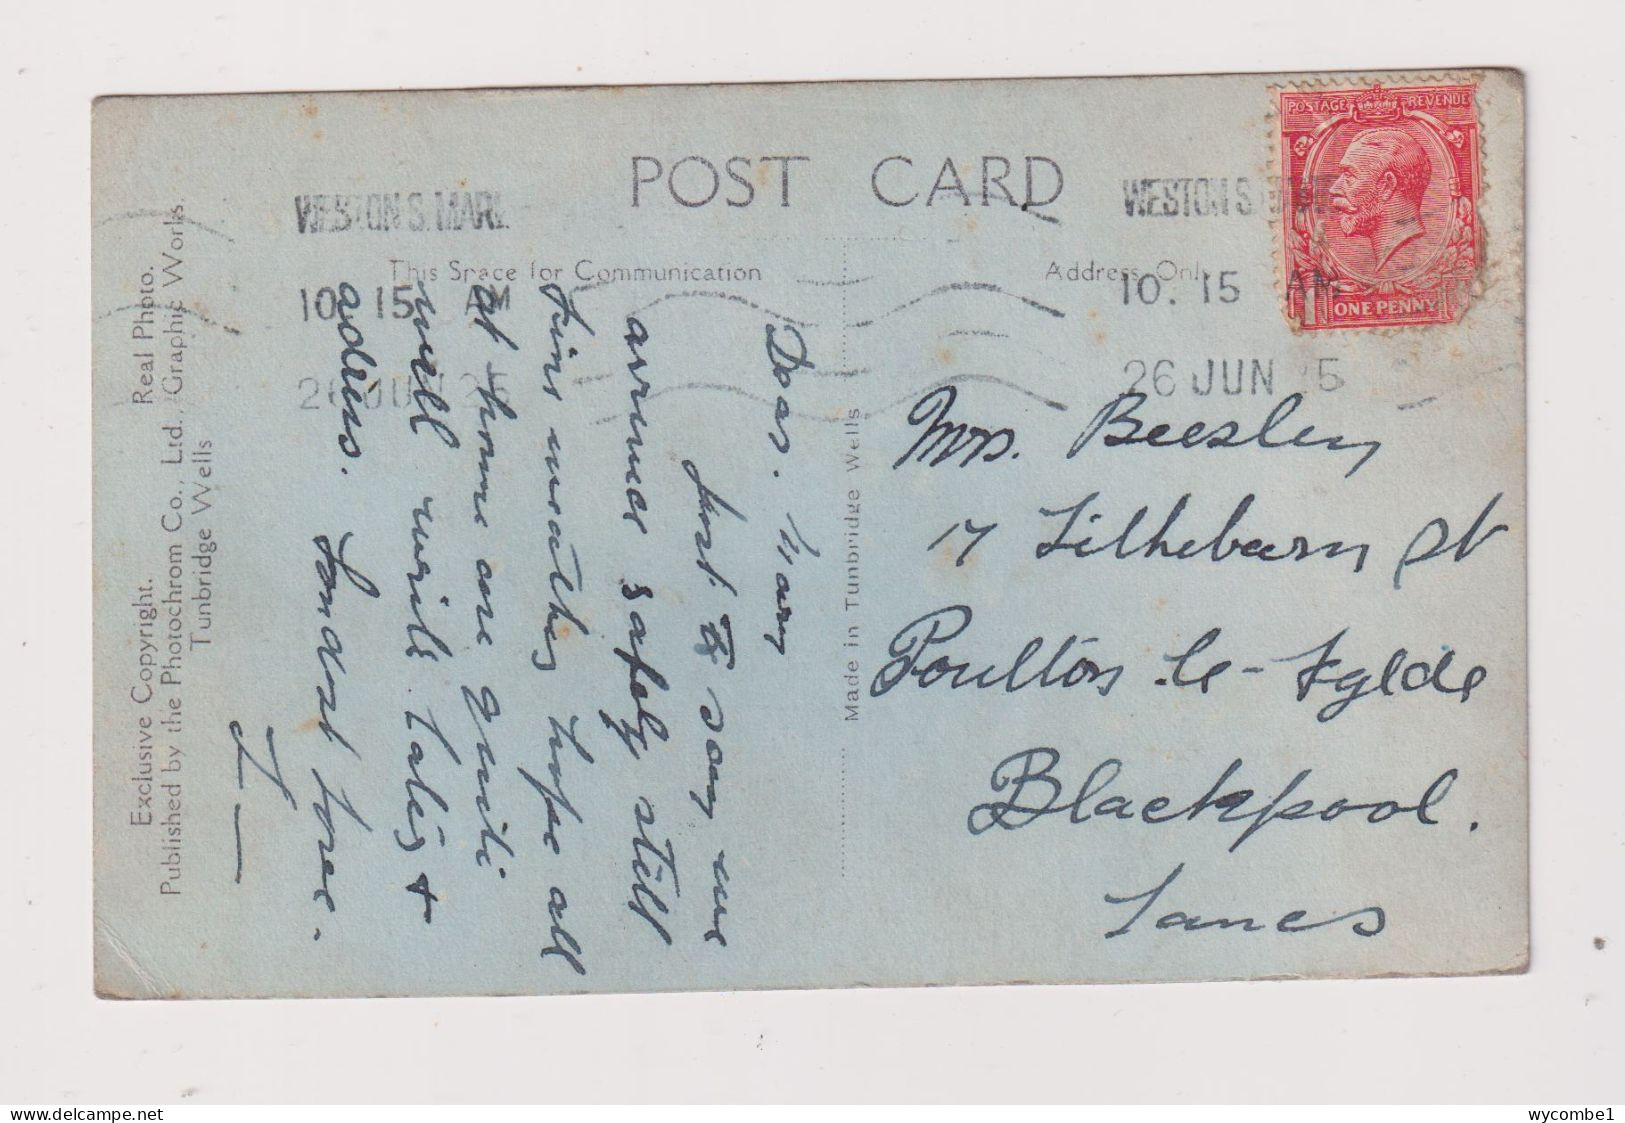 POST CARD
WESTON S. MARE
10. 15 AM
26 JUN 25
WESTON S. MARE
10. 15 AM
26 JUN 25
POSTAGE REVENUE
ONE PENNY
This Space for Communication
Address Only
Exclusive Copyright. Real Photo.
Published by the Photochrom Co., Ltd., Graphic Works,
Tunbridge Wells
Made in Tunbridge Wells
Dear. Mary
Just to say we
arrived safely still
fine weather hope all
at home are quite
well write later +
address. Fondest love.
Mrs. Beesley
17 Lithebarn St
Poulton-le-Fylde
Blackpool.
Lancs
wycombe1